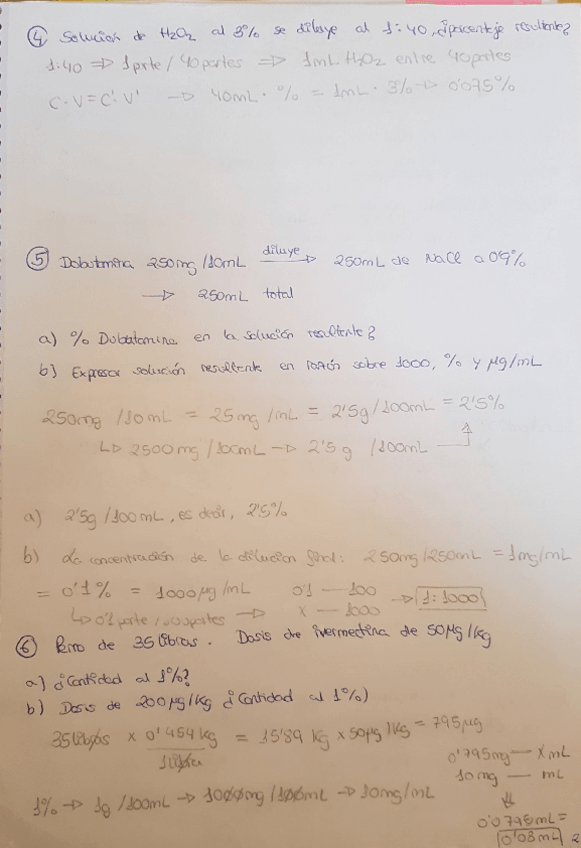 ④ Solución de H₂O₂ al 3% se diluye al 1:40, ¿porcentaje resultante?
1:40 ⇒ 1 parte / 40 partes ⇒ 1mL H₂O₂ entre 40 partes
C·V = C'·V' → 40mL · % = 1mL · 3% → 0'075%
⑤ Dobutamina 250mg/10mL diluye → 250mL de NaCl a 09%
→ 250mL total
a) % Dobutamina en la solución resultante?
b) Expresar solución resultante en razón sobre 1000, % y µg/mL
250mg /10mL = 25mg/mL = 2'5g/100mL = 2'5%
↳ 2500mg/100mL → 2'5 g /100mL
a) 2'5g/100mL, es decir, 2'5%
b) La concentración de la dilución final: 250mg/250mL = 1mg/mL
= 0'1% = 1000µg/mL 0'1 — 100 → 1:1000
↳ 0'1 parte/100 partes → x — 1000
⑥ Perro de 35 libras. Dosis de ivermectina de 50µg/kg
a) ¿Cantidad al 1%?
b) Dosis de 200µg/kg ¿Cantidad al 1%)
35 libras x 0'454 kg / 1 libra = 15'89 kg x 50µg/kg = 795µg
0'795mg — x mL
10mg — mL
1% → 1g /100mL → 1000mg/100mL → 10mg/mL
0'0795mL =
0'08mL